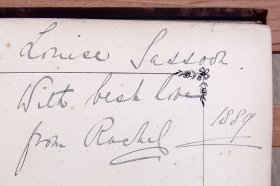 Louise Sassoon.
With best love
from Rachel
1889